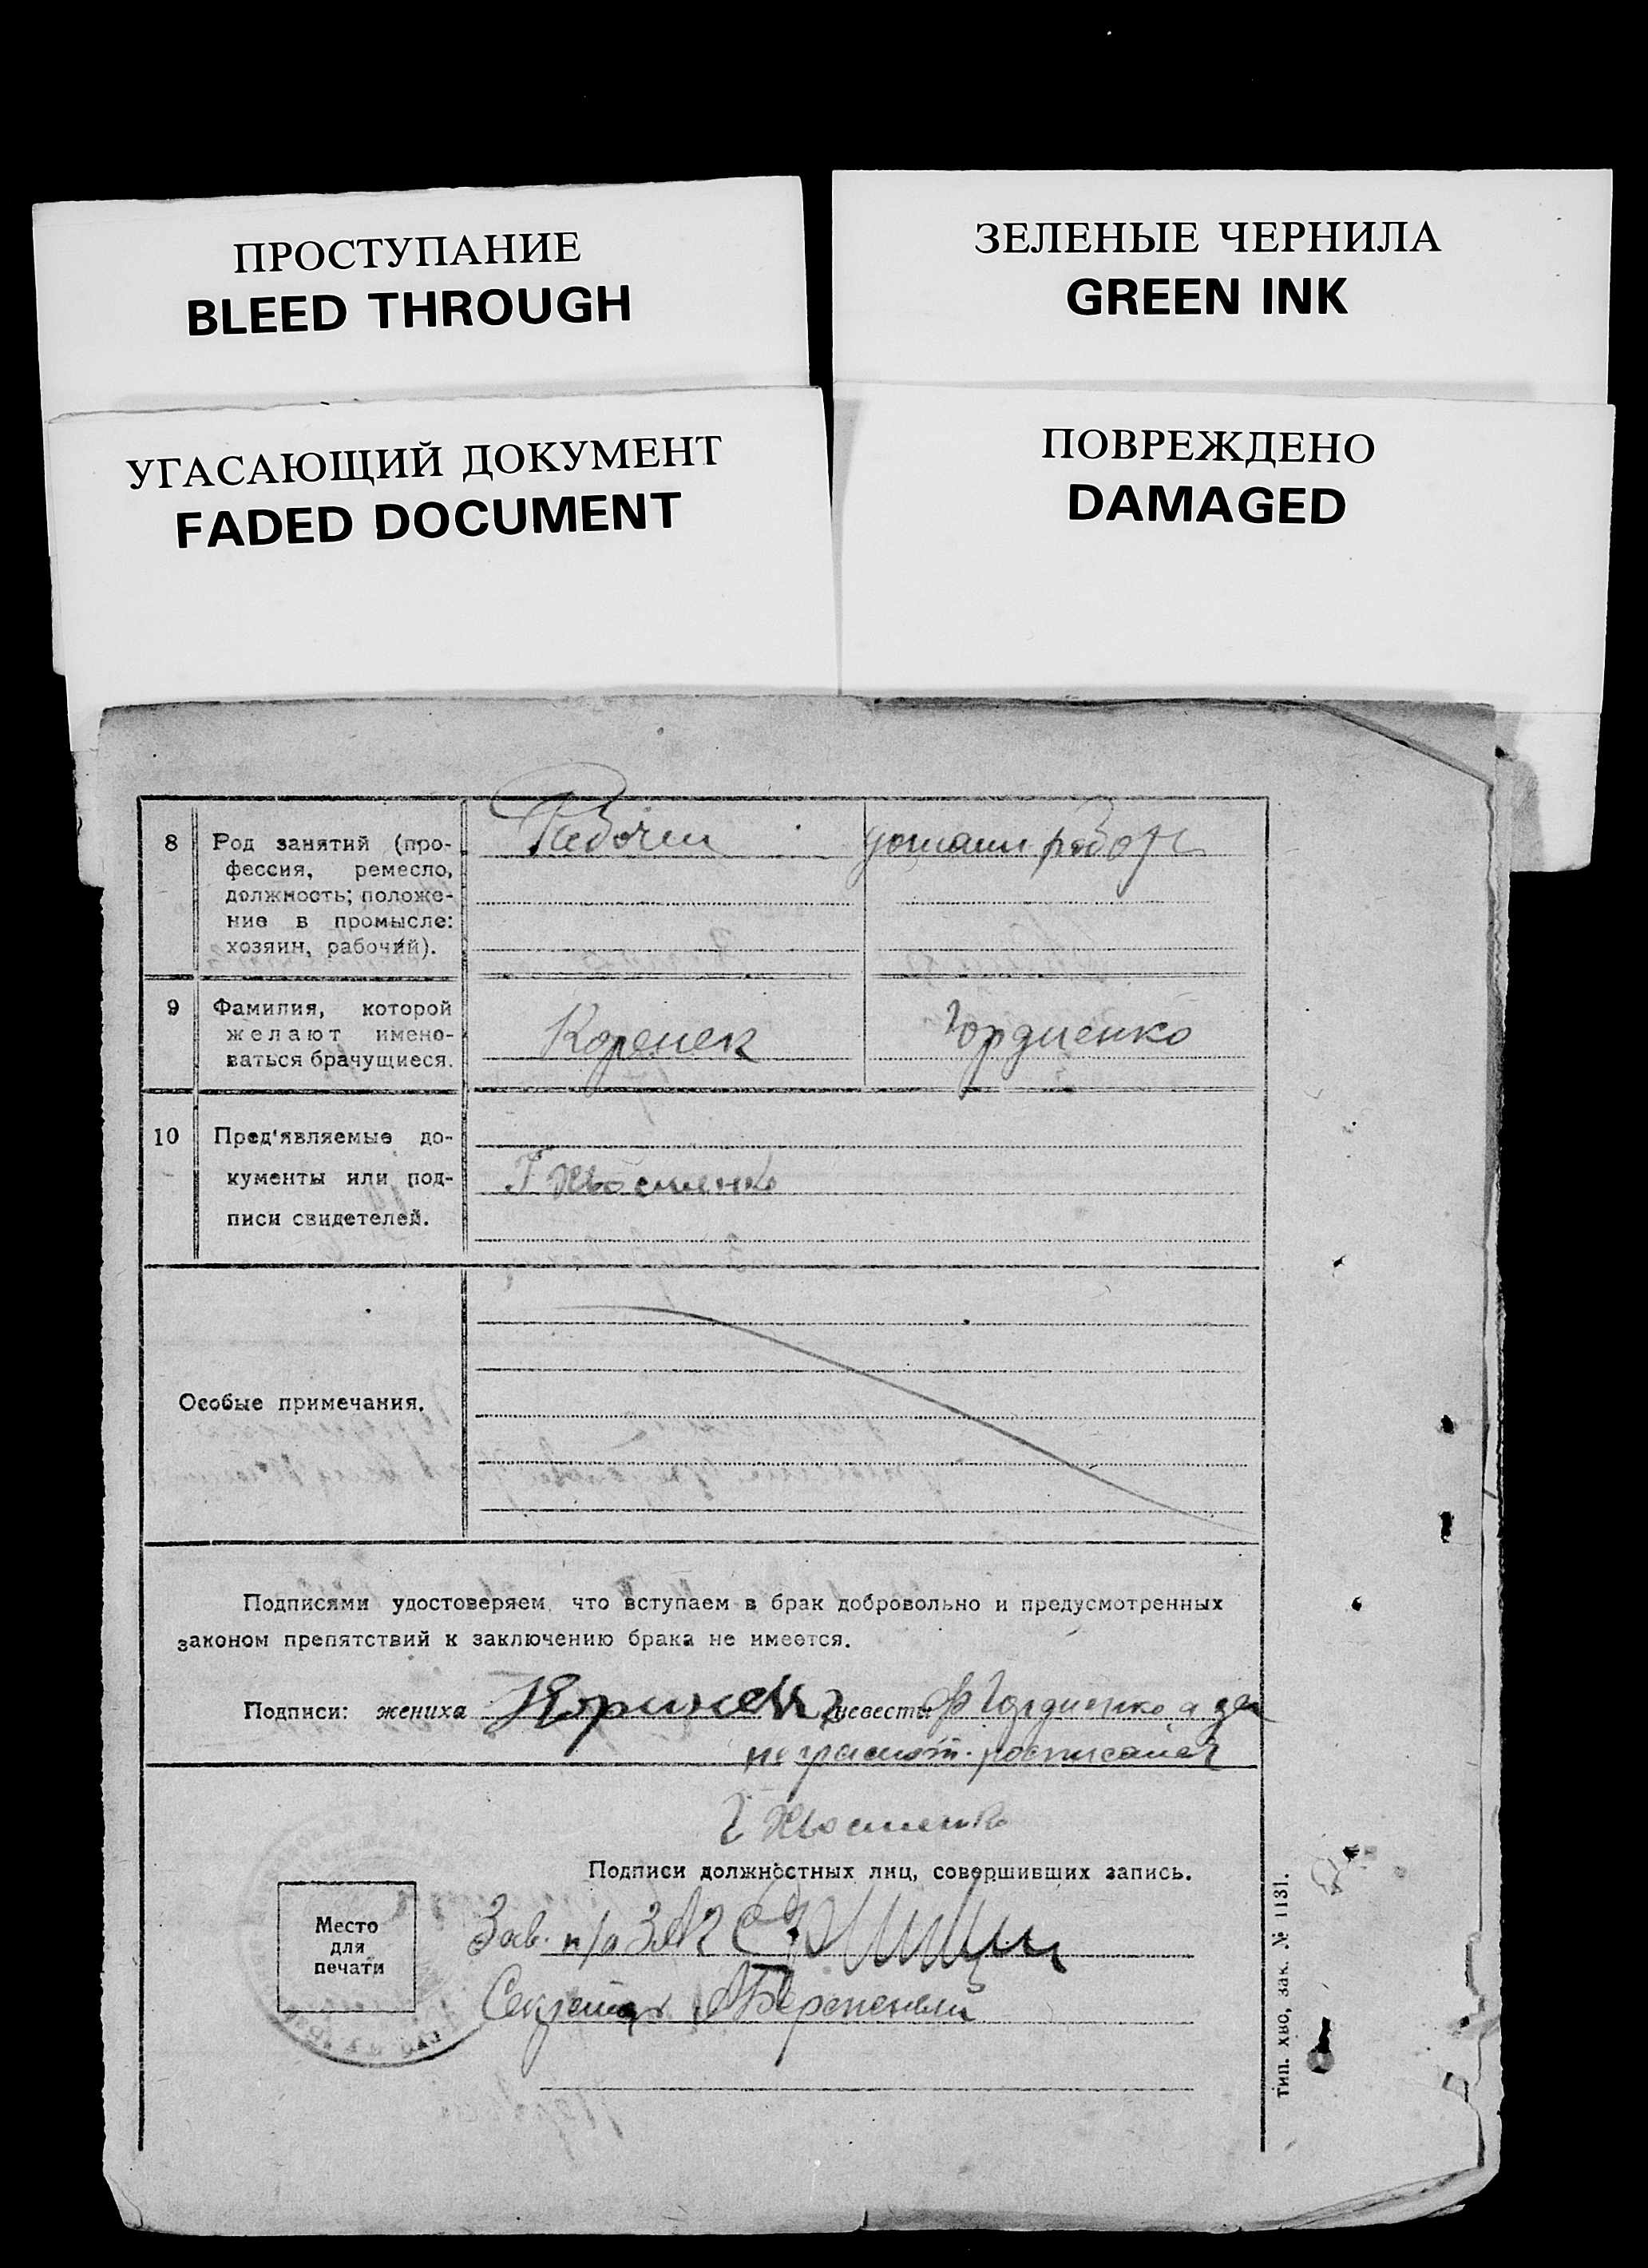 ПРОСТУПАНИЕ
BLEED THROUGH
ЗЕЛЕНЫЕ ЧЕРНИЛА
GREEN INK
УГАСАЮЩИЙ ДОКУМЕНТ
FADED DOCUMENT
ПОВРЕЖДЕНО
DAMAGED
8 Род занятий (про-
фессия, ремесло,
должность; положе-
ние в промысле:
хозяин, рабочий).
Рабочий
домашн работ
9 Фамилия, которой
желают имено-
ваться брачущиеся.
Коренек
Гордиенко
10 Пред'являемые до-
кументы или под-
писи свидетелей.
Г Хвостенко
Особые примечания.
Подписями удостоверяем, что вступаем в брак добровольно и предусмотренных
законом препятствий к заключению брака не имеется.
Подписи: жениха невесты Ф Гордиенко а за
неграмот. росписался
Г Хвостенко
Подписи должностных лиц, совершивших запись.
Место
для
печати
Зав. п/о ЗАГС
Секретарь
тип. хво, зак. № 1131.